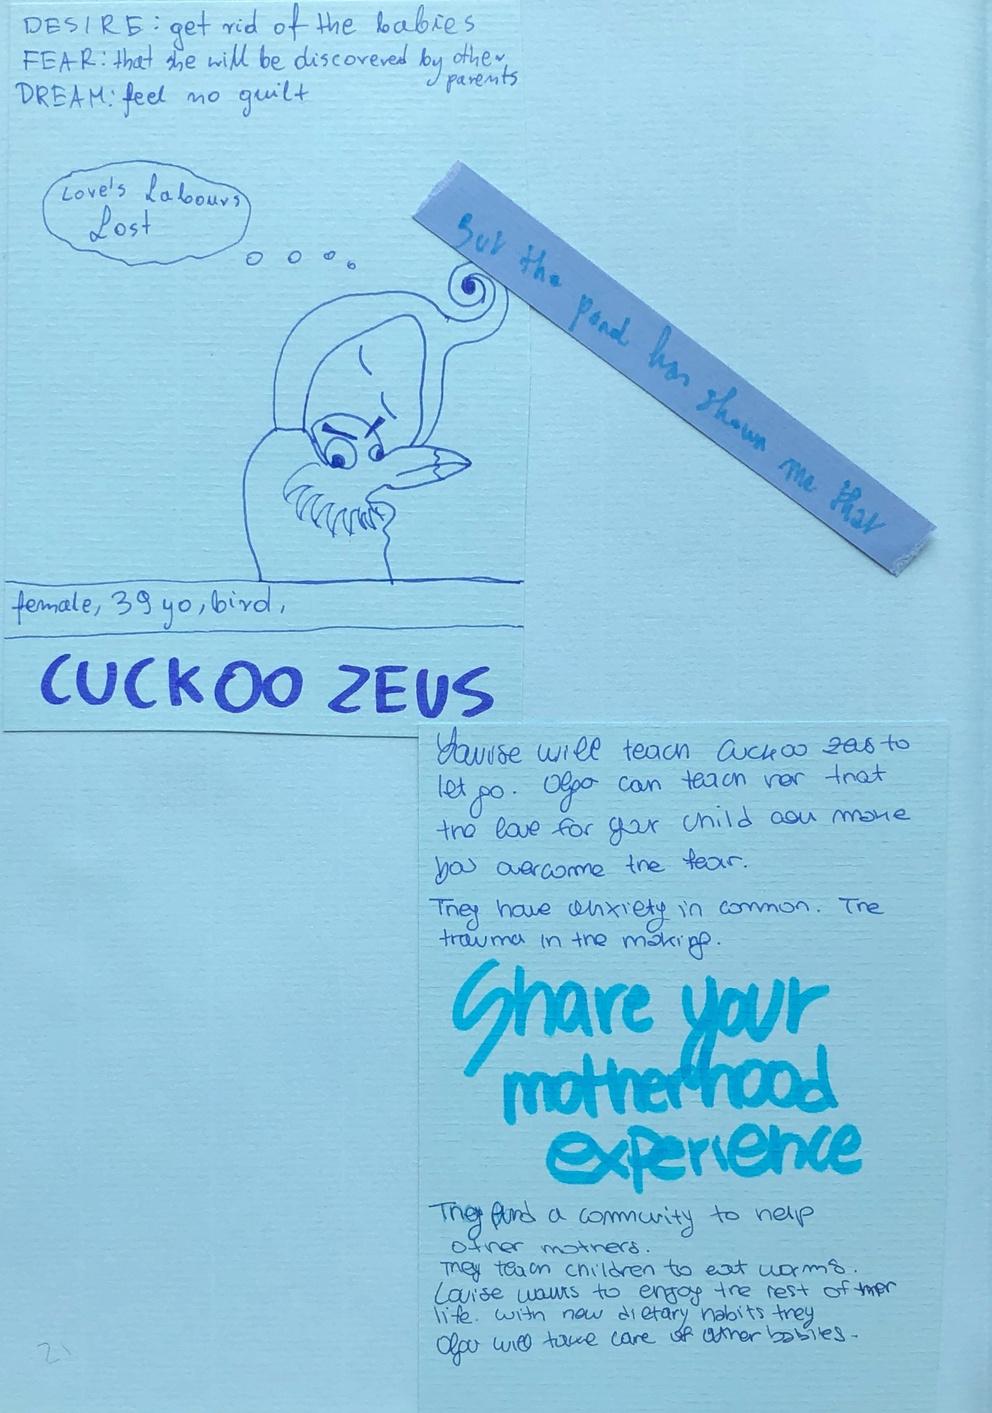 DESIRE: get rid of the babies
FEAR: that she will be discovered by other
parents
DREAM: feel no guilt
Love's Labours
Lost
But the pond has shown me that
female, 39 yo, bird,
CUCKOO ZEUS
Louise will teach Cuckoo zeus to
let go. Olga can teach her that
the love for your child can make
you overcome the fear.
They have anxiety in common. The
trauma in the making.
Share your
motherhood
experience
They fund a community to help
other mothers.
They teach children to eat worms.
Louise wants to enjoy the rest of her
life. with new dietary habits they
Olga will take care of other babies.
21